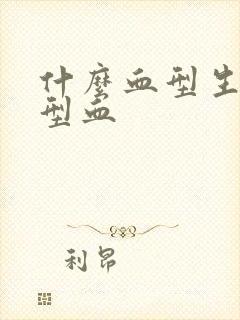 什麼血型生
型血
利昂